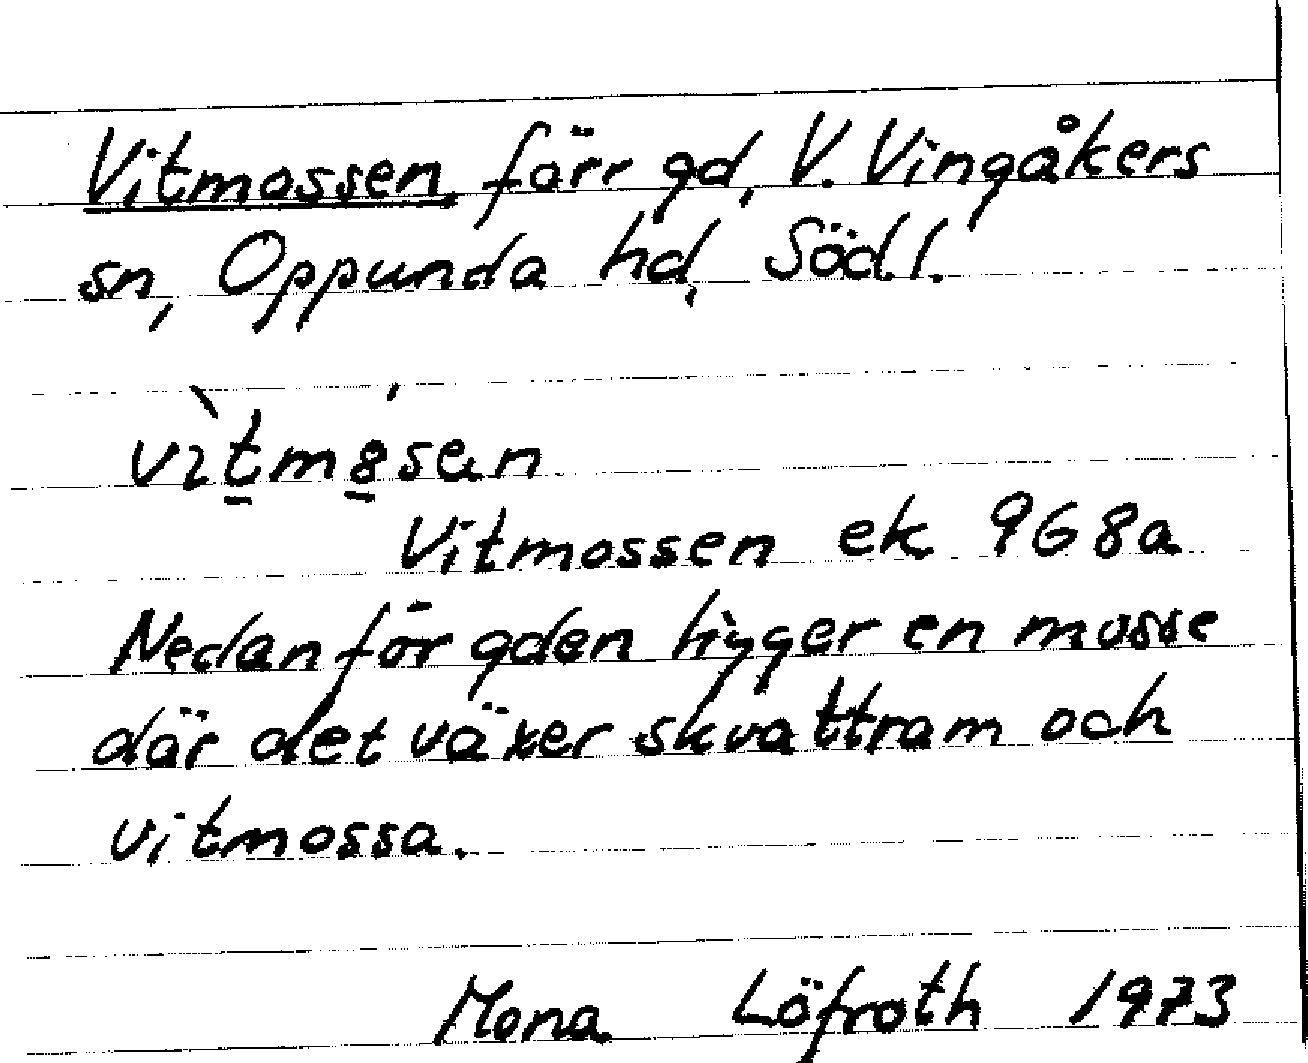 Vitmossen, förr gd, V. Vingåkers
sn, Oppunda hd, Södl.
Vitmossen ek 968a
Nedanför gden ligger en mosse
där det växer skvattram och
vitmossa.
Mona Löfroth 1973